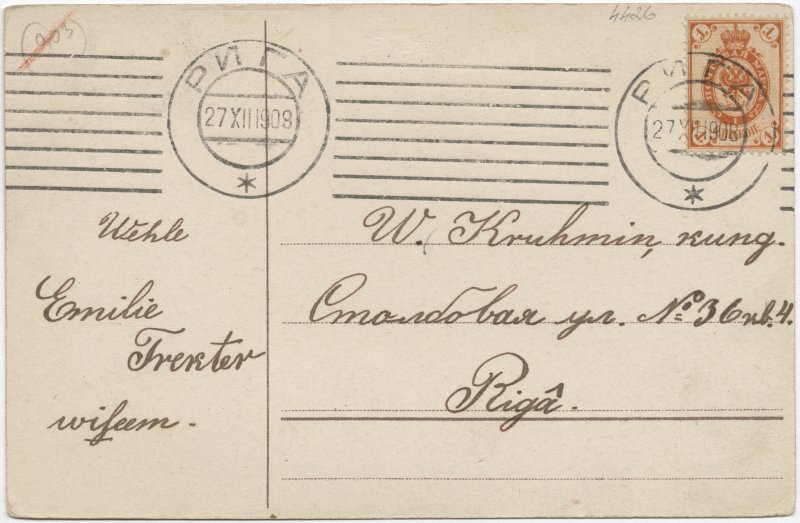 003
4426
РИГА
27 XII 1908
РИГА
27 XII 1908
1
1
1
Wehle
Emilie
Trekter
wiſeem.
W. Kruhmiņ kung.
Столбовая ул. № 36 кв. 4.
Rigâ.